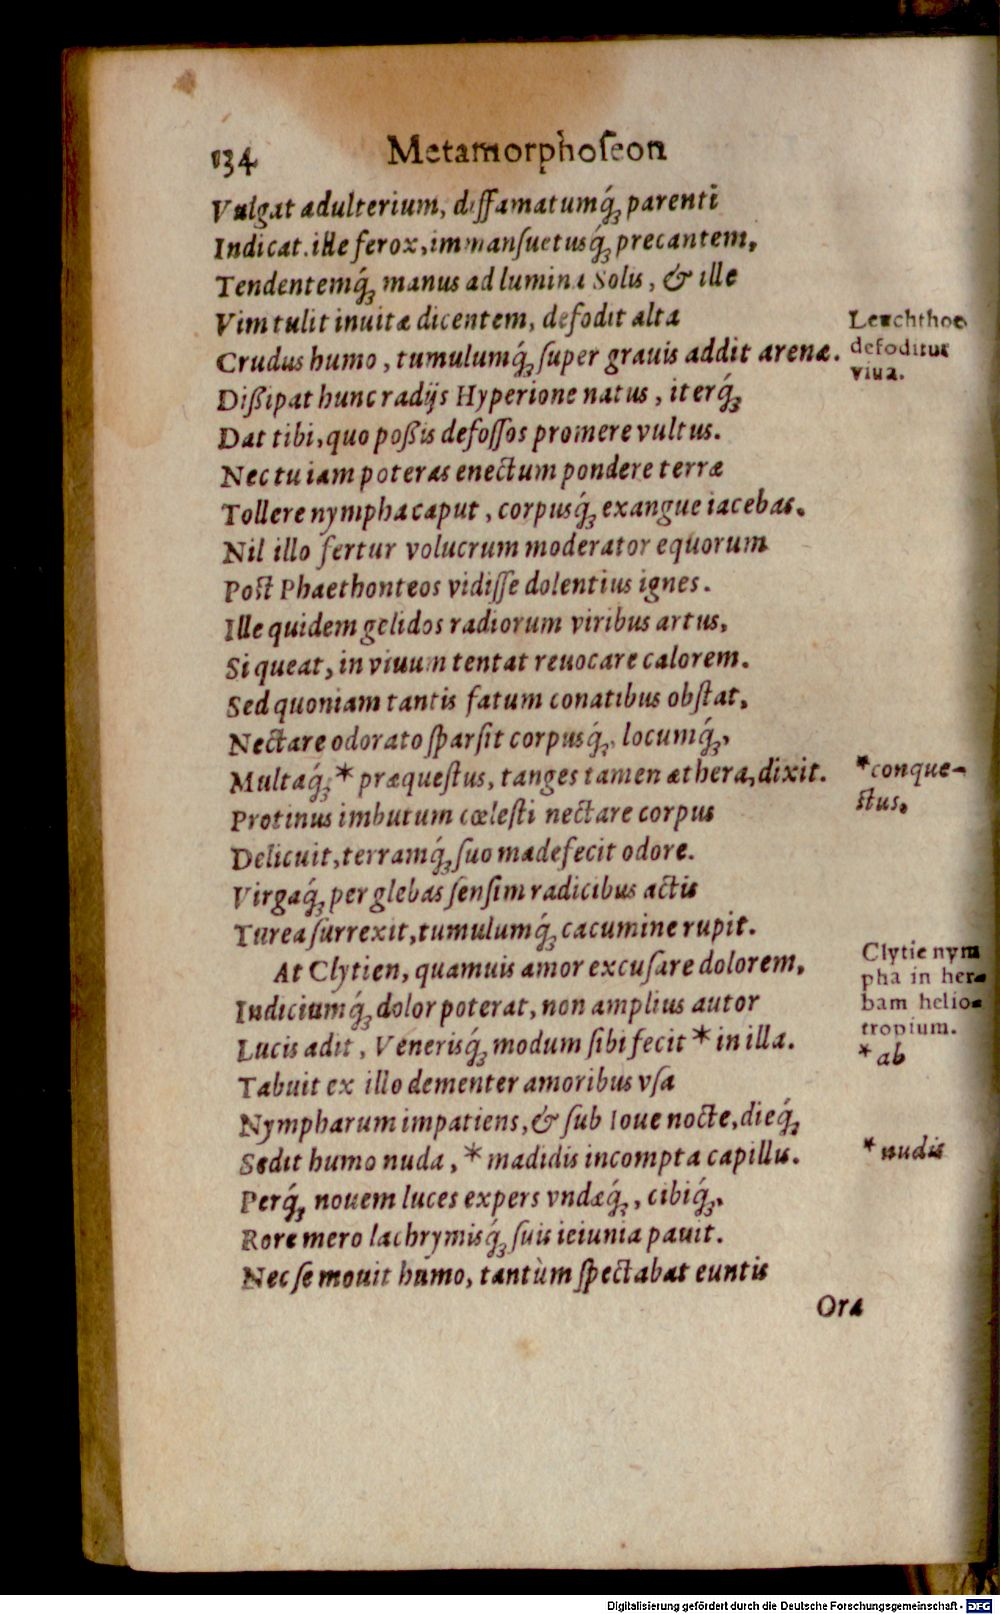 134 Metamorphoſeon
Vulgat adulterium, diffamatumq́ꝫ parenti
Indicat. ille ferox, immanſuetusq́ꝫ precantem,
Tendentemq́ꝫ manus ad lumina Solis, & ille
Vim tulit inuitæ dicentem, defodit alta
Crudus humo, tumulumq́ꝫ ſuper grauis addit arenæ.
Leucthoe
defoditur
viua.
Dißipat hunc radijs Hyperione natus, iterq́ꝫ
Dat tibi, quo poßis defoſſos promere vultus.
Nec tu iam poteras enectum pondere terræ
Tollere nympha caput, corpusq́ꝫ exangue iacebas.
Nil illo fertur volucrum moderator equorum
Poſt Phaethonteos vidiſſe dolentius ignes.
Ille quidem gelidos radiorum viribus artus,
Si queat, in viuum tentat reuocare calorem.
Sed quoniam tantis fatum conatibus obſtat,
Nectare odorato ſparſit corpusq́ꝫ, locumq́ꝫ,
Multaq́ꝫ * præqueſtus, tanges tamen æthera, dixit.
*conque-
ſtus.
Protinus imbutum cœleſti nectare corpus
Delicuit, terramq́ꝫ ſuo madefecit odore.
Virgaq́ꝫ per glebas ſenſim radicibus actis
Turea ſurrexit, tumulumq́ꝫ cacumine rupit.
At Clytien, quamuis amor excuſare dolorem,
Indiciumq́ꝫ dolor poterat, non amplius autor
Lucis adit, Venerisq́ꝫ modum ſibi fecit * in illa.
Clytie nym
pha in her-
bam helio-
tropium.
* ab
Tabuit ex illo dementer amoribus vſa
Nympharum impatiens, & ſub Ioue nocte, dieq́ꝫ
Sedit humo nuda, * madidis incompta capillis.
* nudis
Perq́ꝫ nouem luces expers vndæq́ꝫ, cibiq́ꝫ,
Rore mero lachrymisq́ꝫ ſuis ieiunia pauit.
Nec ſe mouit humo, tantùm ſpectabat euntis
Ora
Digitalisierung gefördert durch die Deutsche Forschungsgemeinschaft - DFG